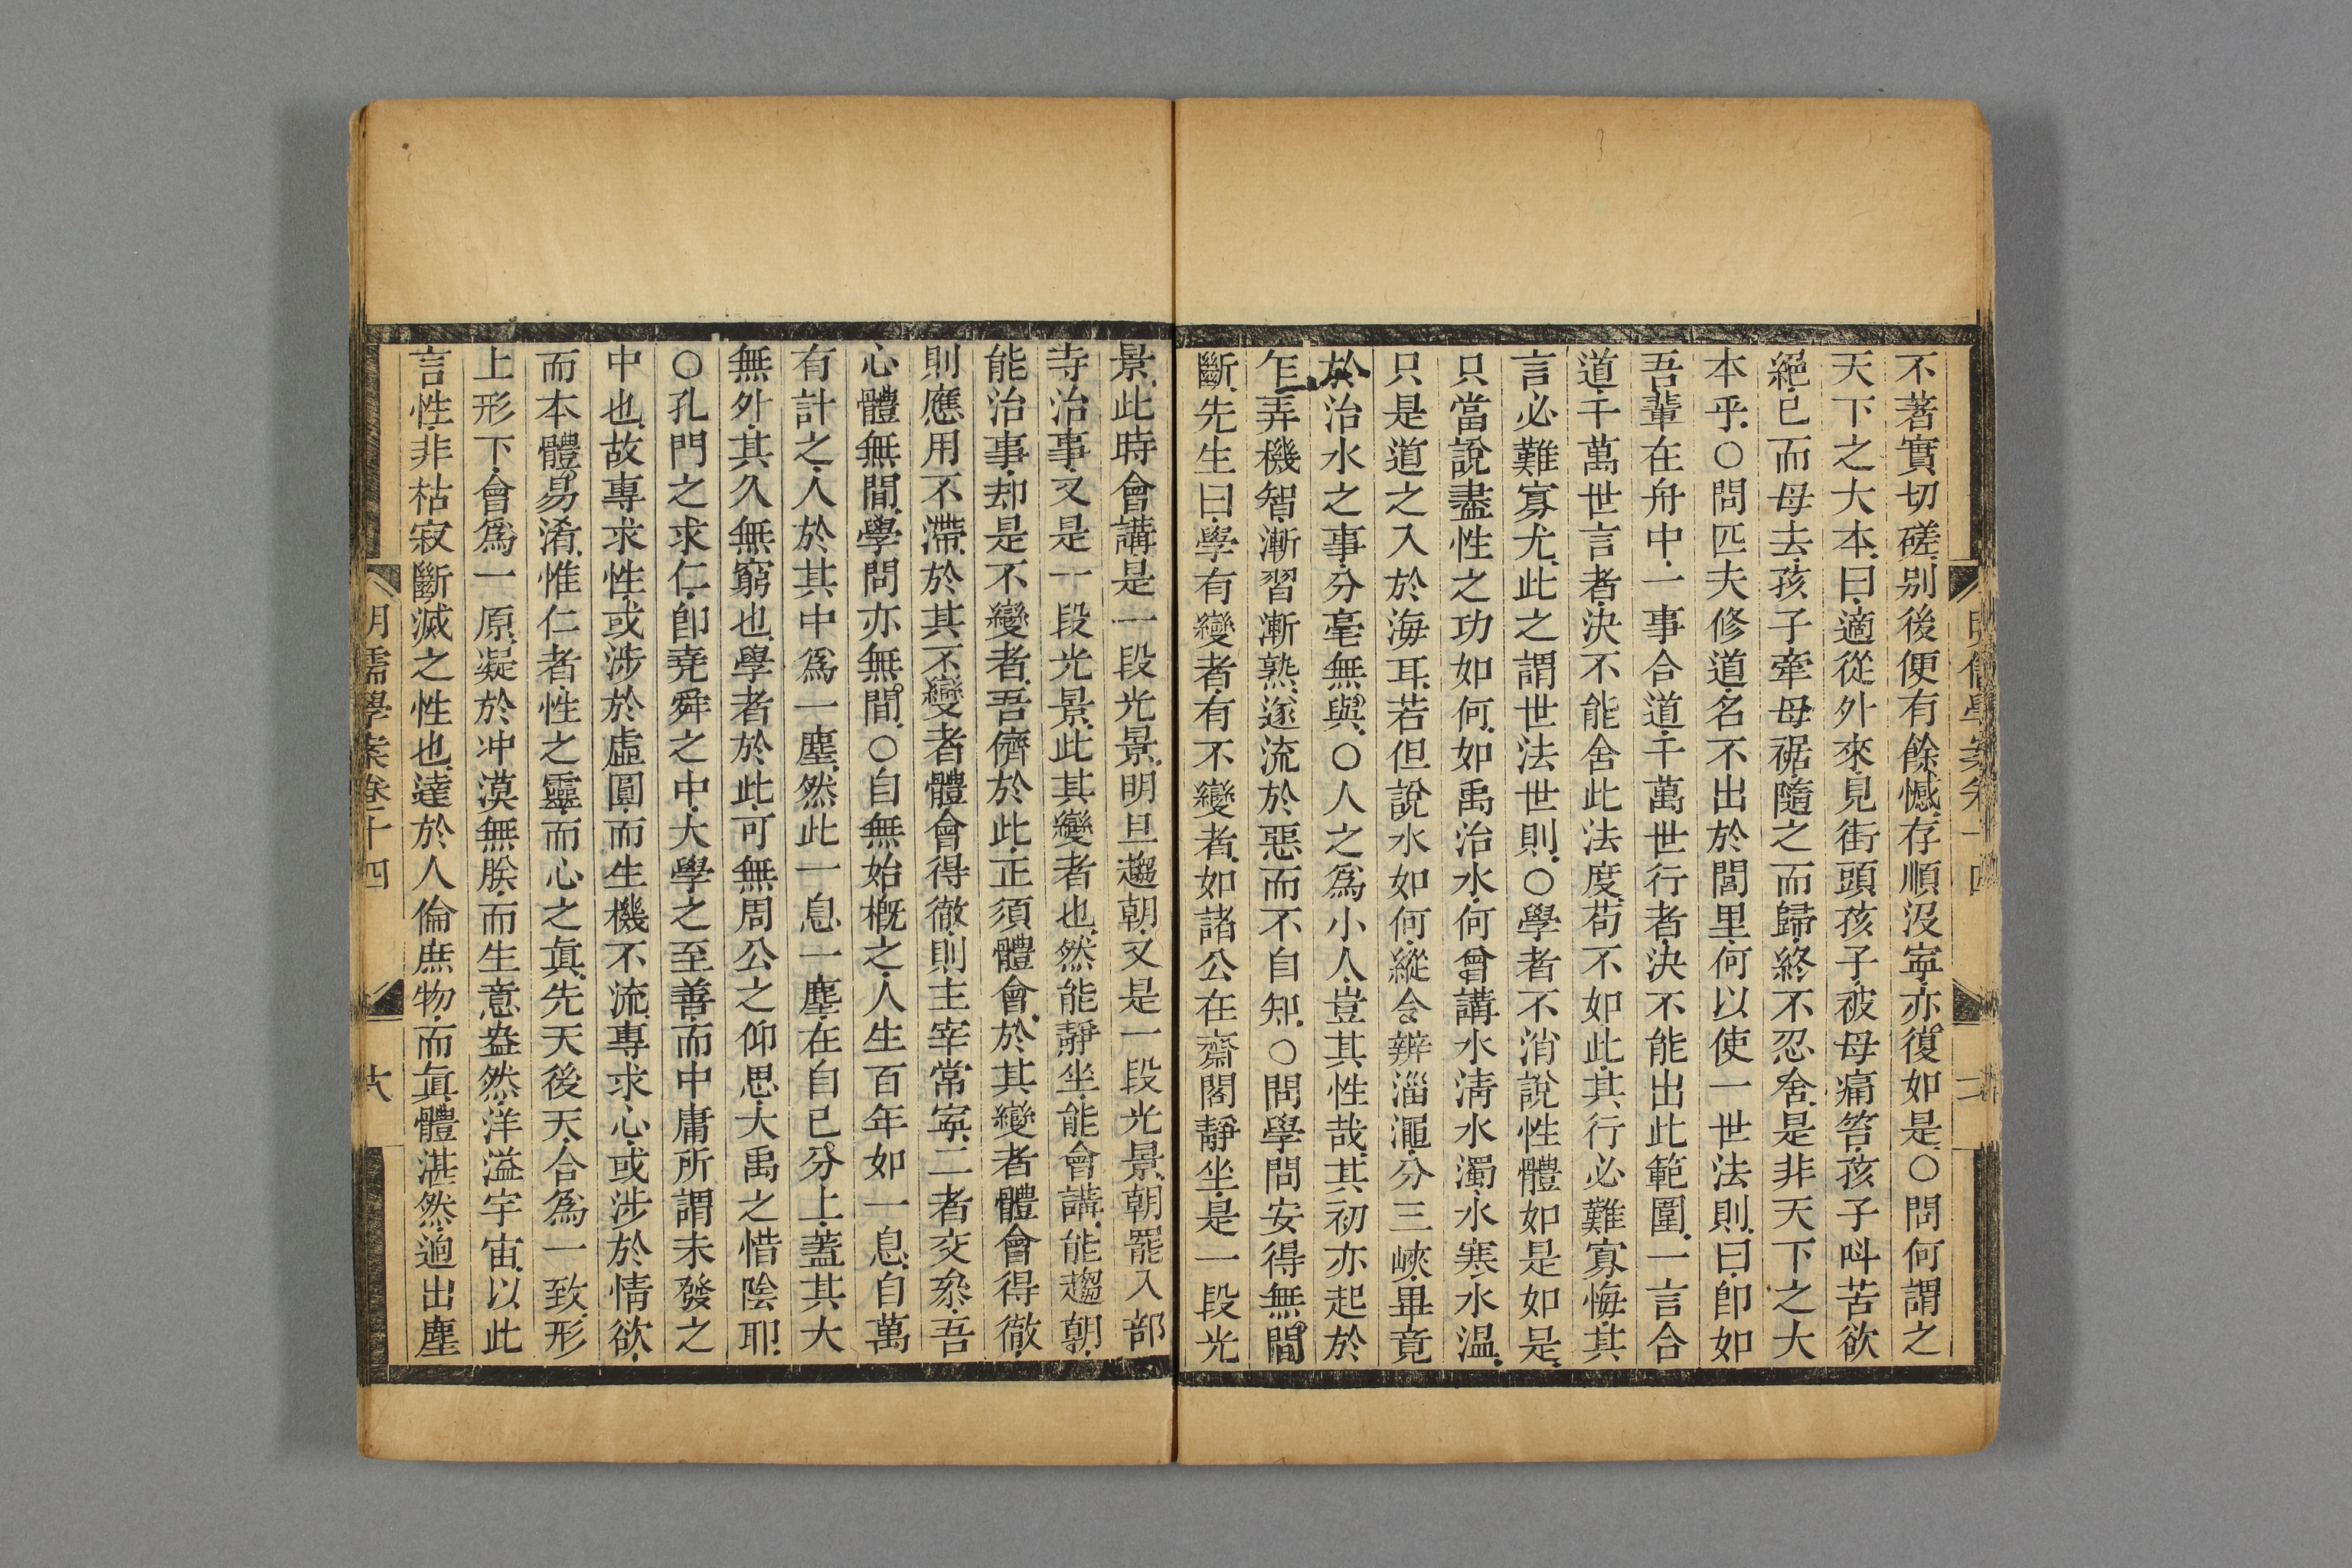 不著實切磋別後便有餘憾存順沒寧亦復如是○問何謂之
天下之大本曰適從外來見街頭孩子被母痛笞孩子呌苦欲
絕已而母去孩子牽母裾隨之而歸終不忍舍是非天下之大
本乎○問匹夫修道名不出於閭里何以使一世法則曰卽如
吾輩在舟中一事合道千萬世行者決不能出此範圍一言合
道千萬世言者決不能舍此法度苟不如此其行必難寡悔其
言必難寡尤此之謂世法世則○學者不消說性體如是如是
只當說盡性之功如何如禹治水何曾講水清水濁水寒水温
只是道之入於海耳若但說水如何縱令辨淄澠分三峽畢竟
於治水之事分毫無與○人之爲小人豈其性哉其初亦起於
乍弄機智漸習漸熟遂流於惡而不自知○問學問安得無間
斷先生曰學有變者有不變者如諸公在齋閣靜坐是一段光
景此時會講是一段光景明旦趨朝又是一段光景朝罷入部
寺治事又是一段光景此其變者也然能靜坐能會講能趨朝
能治事却是不變者吾儕於此正須體會於其變者體會得徹
則應用不滯於其不變者體會得徹則主宰常寧二者交叅吾
心體無間學問亦無間○自無始概之人生百年如一息自萬
有計之人於其中爲一塵然此一息一塵在自己分上蓋其大
無外其久無窮也學者於此可無周公之仰思大禹之惜陰耶
○孔門之求仁卽堯舜之中大學之至善而中庸所謂未發之
中也故專求性或涉於虛圓而生機不流專求心或涉於情欲
而本體易淆惟仁者性之靈而心之眞先天後天合爲一致形
上形下會爲一原凝於冲漠無朕而生意盎然洋溢宇宙以此
言性非枯寂斷滅之性也達於人倫庶物而眞體湛然逈出塵
明儒學案卷二十四